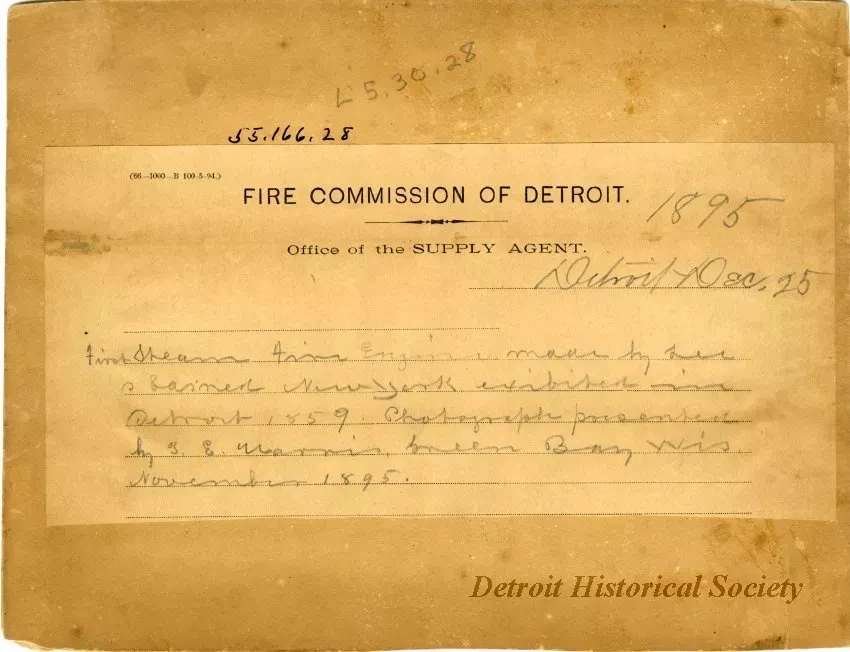 L 5.30.28
55.166.28
(66—1000—B 100-5-94.)
FIRE COMMISSION OF DETROIT.
1895
Office of the SUPPLY AGENT.
Detroit Dec. 25
First Steam Fire Engine made by Lee
& Larned New York exibited in
Detroit 1859. Photograph presented
by E. Green Bay Wis.
November 1895.
Detroit Historical Society